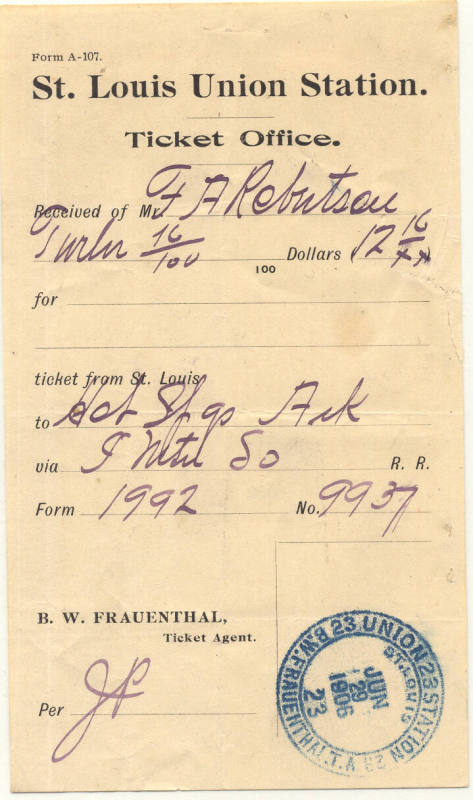 Form A-107.
St. Louis Union Station.
Ticket Office.
Received of Mr F A Robertson
Twelve 16/100 Dollars 12 16/xx
100
for
ticket from St. Louis
to Hot Spgs Ark
via I Mtn So R. R.
Form 1992 No. 9937
B. W. FRAUENTHAL,
Ticket Agent.
Per JP
UNION 23 STATION
ST. LOUIS
JUN
29
1906
23
B.W. FRAUENTHAL. T. A 23